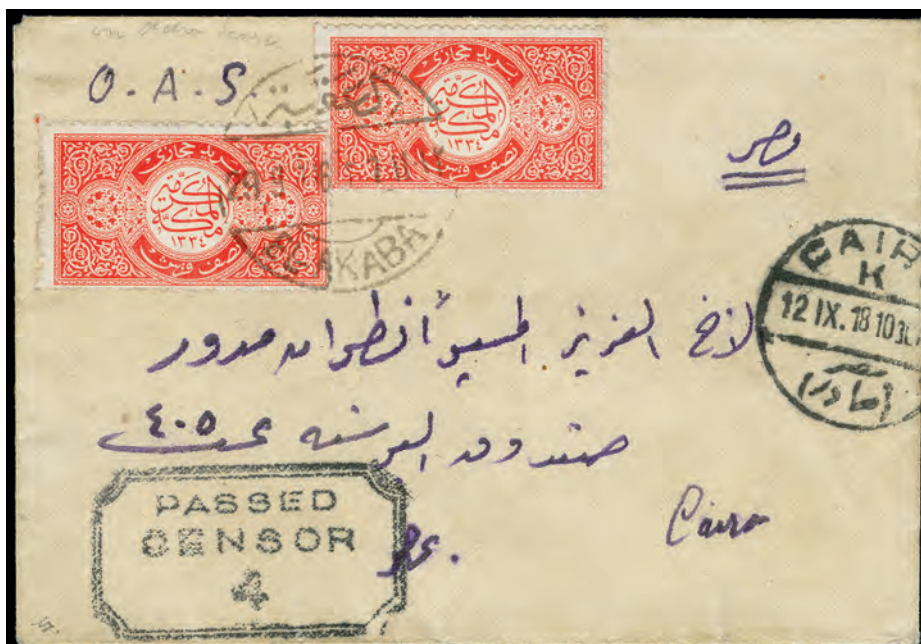 O.A.S
بريد حجازي
مكة المكرمة
١٣٣٤
نصف قرش
بريد حجازي
مكة المكرمة
١٣٣٤
نصف قرش
العقبة
AKABA
مصر
CAIR
K
12 IX. 18 10 30
مصر
لاخ العزيز المسيو أنطوان مدور
صندوق البوسته ٤٠٥
Cairo
PASSED
CENSOR
4